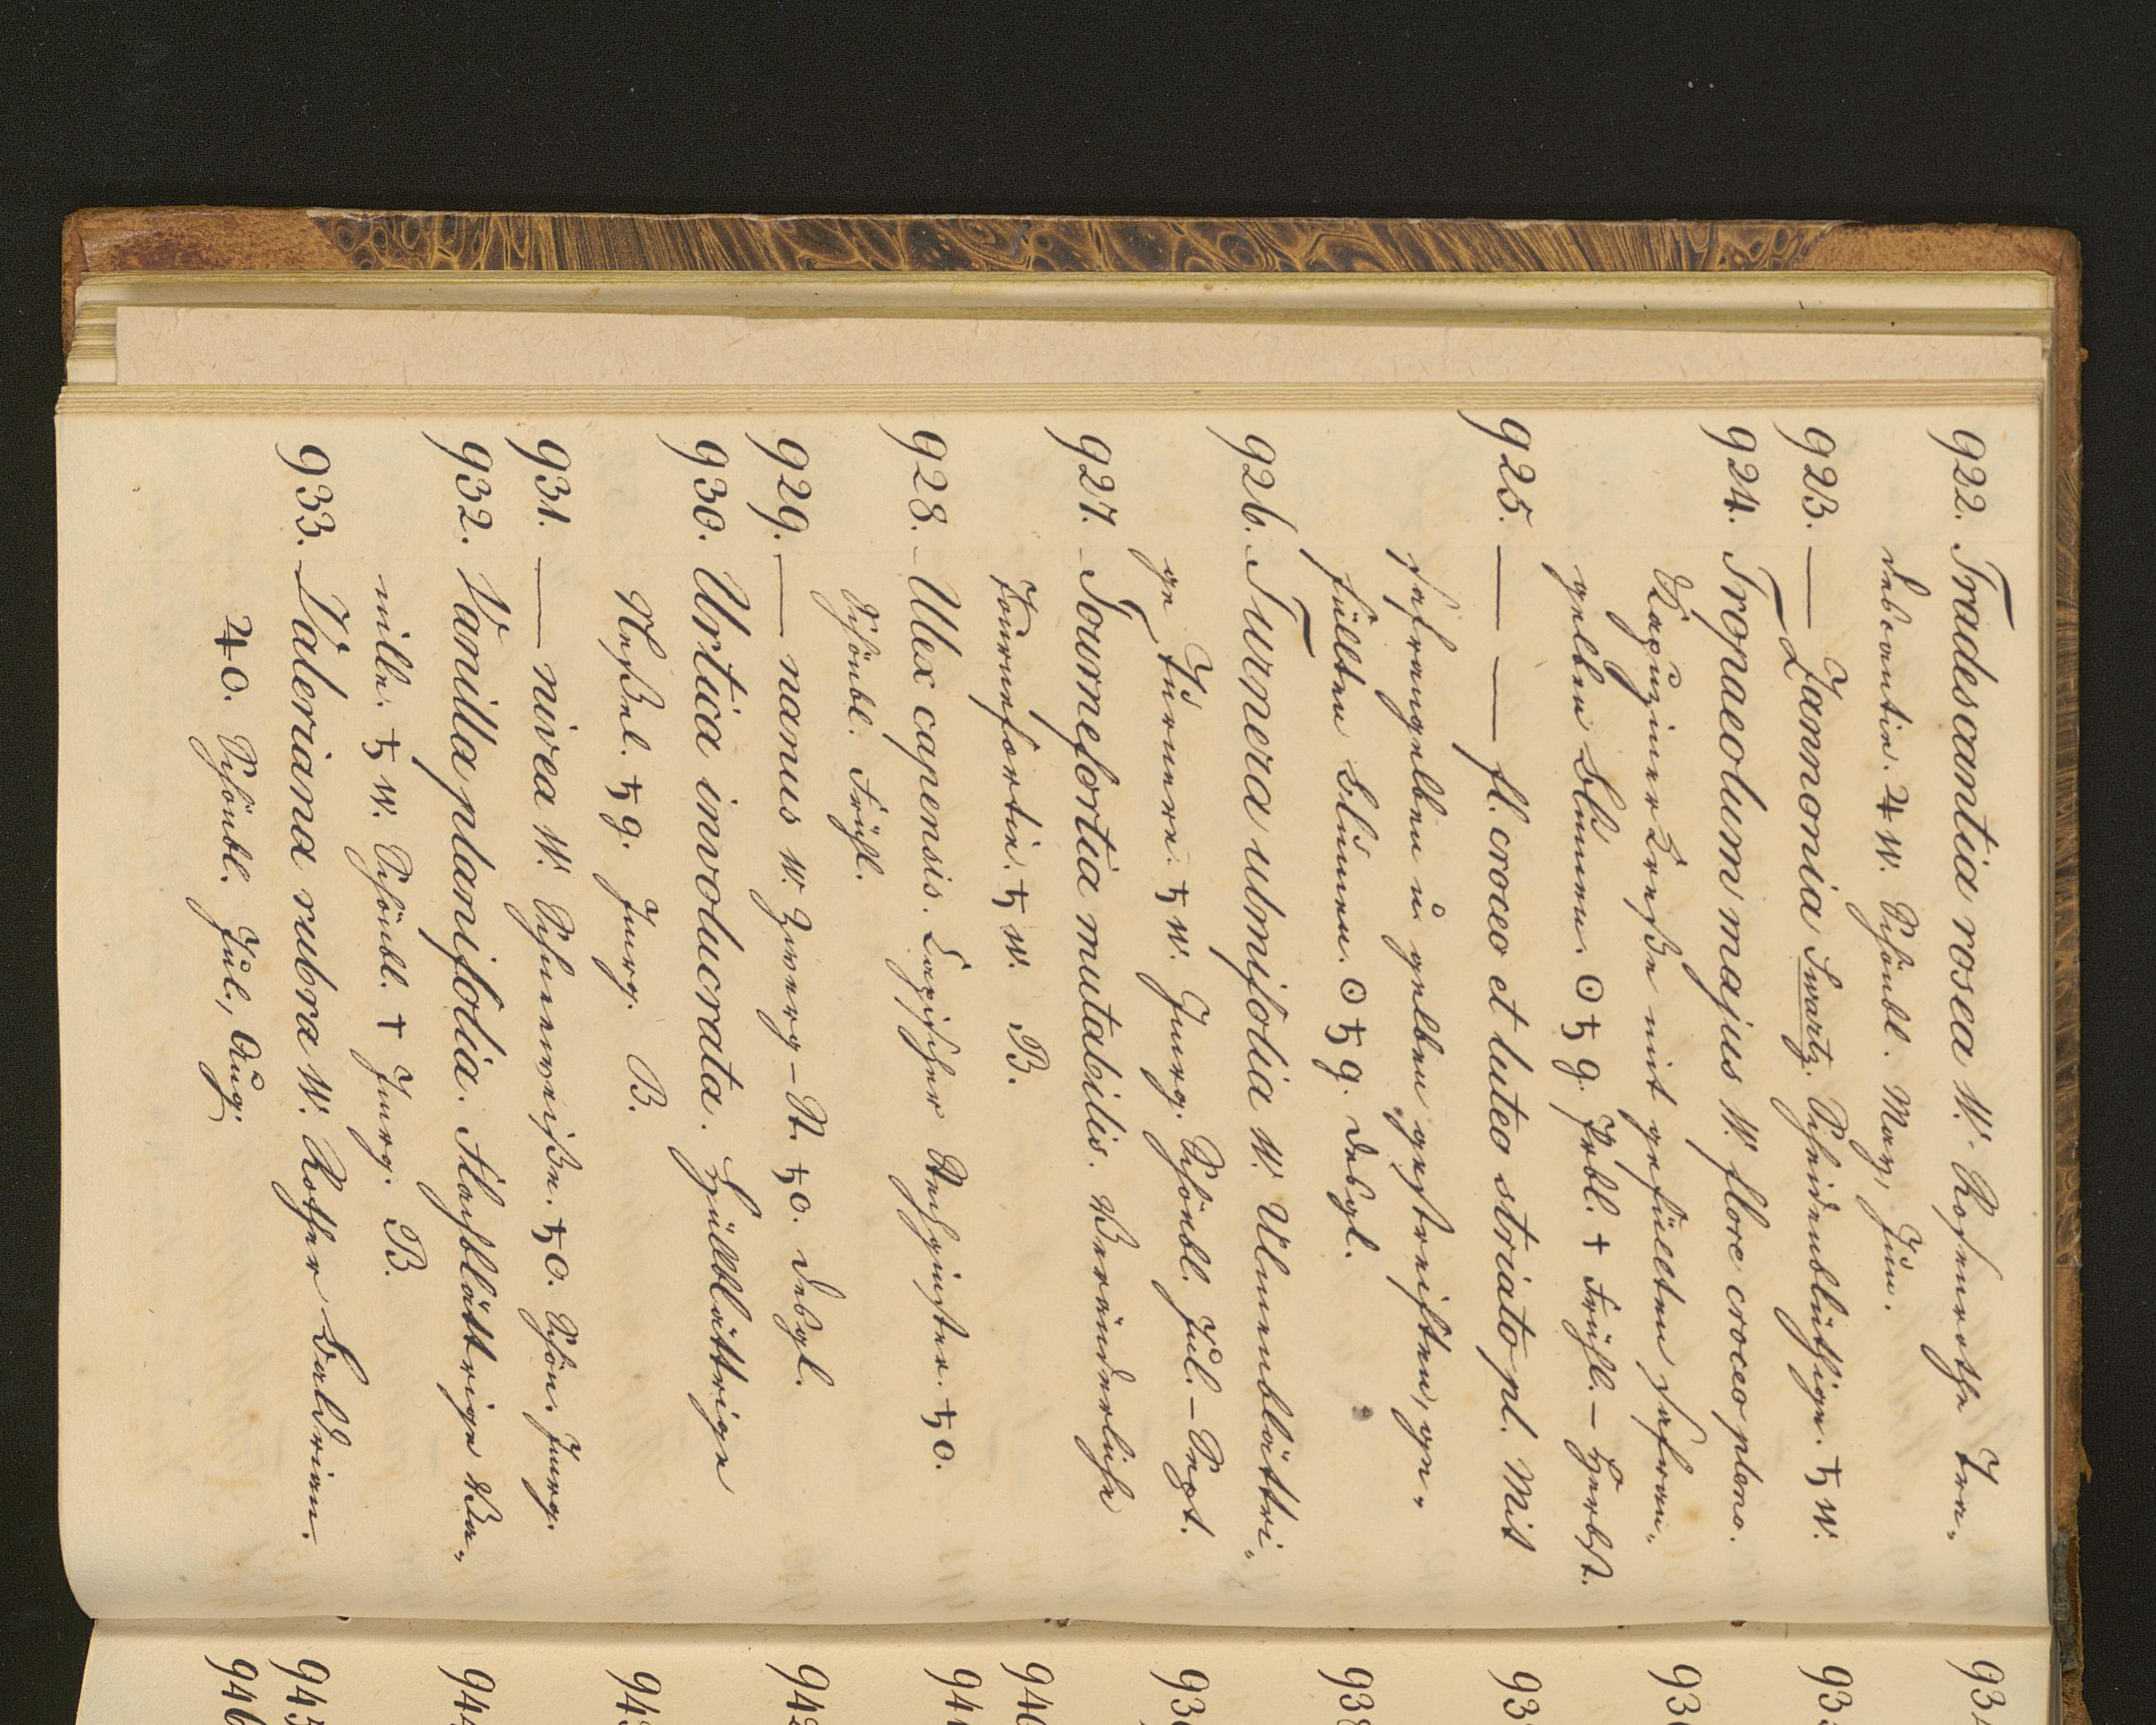 922. Tradescantia rosea W. Rosenrothe Tra„
descantie. ♃ W. Schönbl. May, Jun.
923. — Zannonia Swartz. Scheidenblüthige. ♄ W.
924. Tropaeolum majus W. flore croceo pleno.
Kapuziner Kresse mit gefüllten safran„
gelben Blumen. ☉ ♄ g. Frbl. + Frühl. – Herbst.
925. — — fl. croceo et luteo striato pl. Mit
safrangelben u gelben gestreiften, ge„
füllten Blumen. ☉ ♄ g. desgl.
926. Turnera ulmifolia W. Ulmenblättri„
ge Turnere. ♄ W. Immg. Schönbl. Jul. – Sept.
927. Tournefortia mutabilis. Veränderliche
Tournefortie. ♄ W. B.
928. Ulex capensis. Capischer Stechginster. ♄ o.
Schönbl. Frühl.
929. — nanus W. Zwerg – St. ♄ o. desgl.
930. Urtica involucrata. Hüllblättrige
Nessel. ♄ g. Immg. B.
931. — nivea W. Schneeweisse. ♄ o. Schön. Immg.
932. Vanilla planifolia. Flachblättrige Va„
nille. ♄ W. Schönbl. + Immg. B.
933. Valeriana rubra W. Rother Baldrian.
♃ o. Schönbl. Jul., Aug.
934
93
93
93
938
93
940
94
942
94
944
945
946